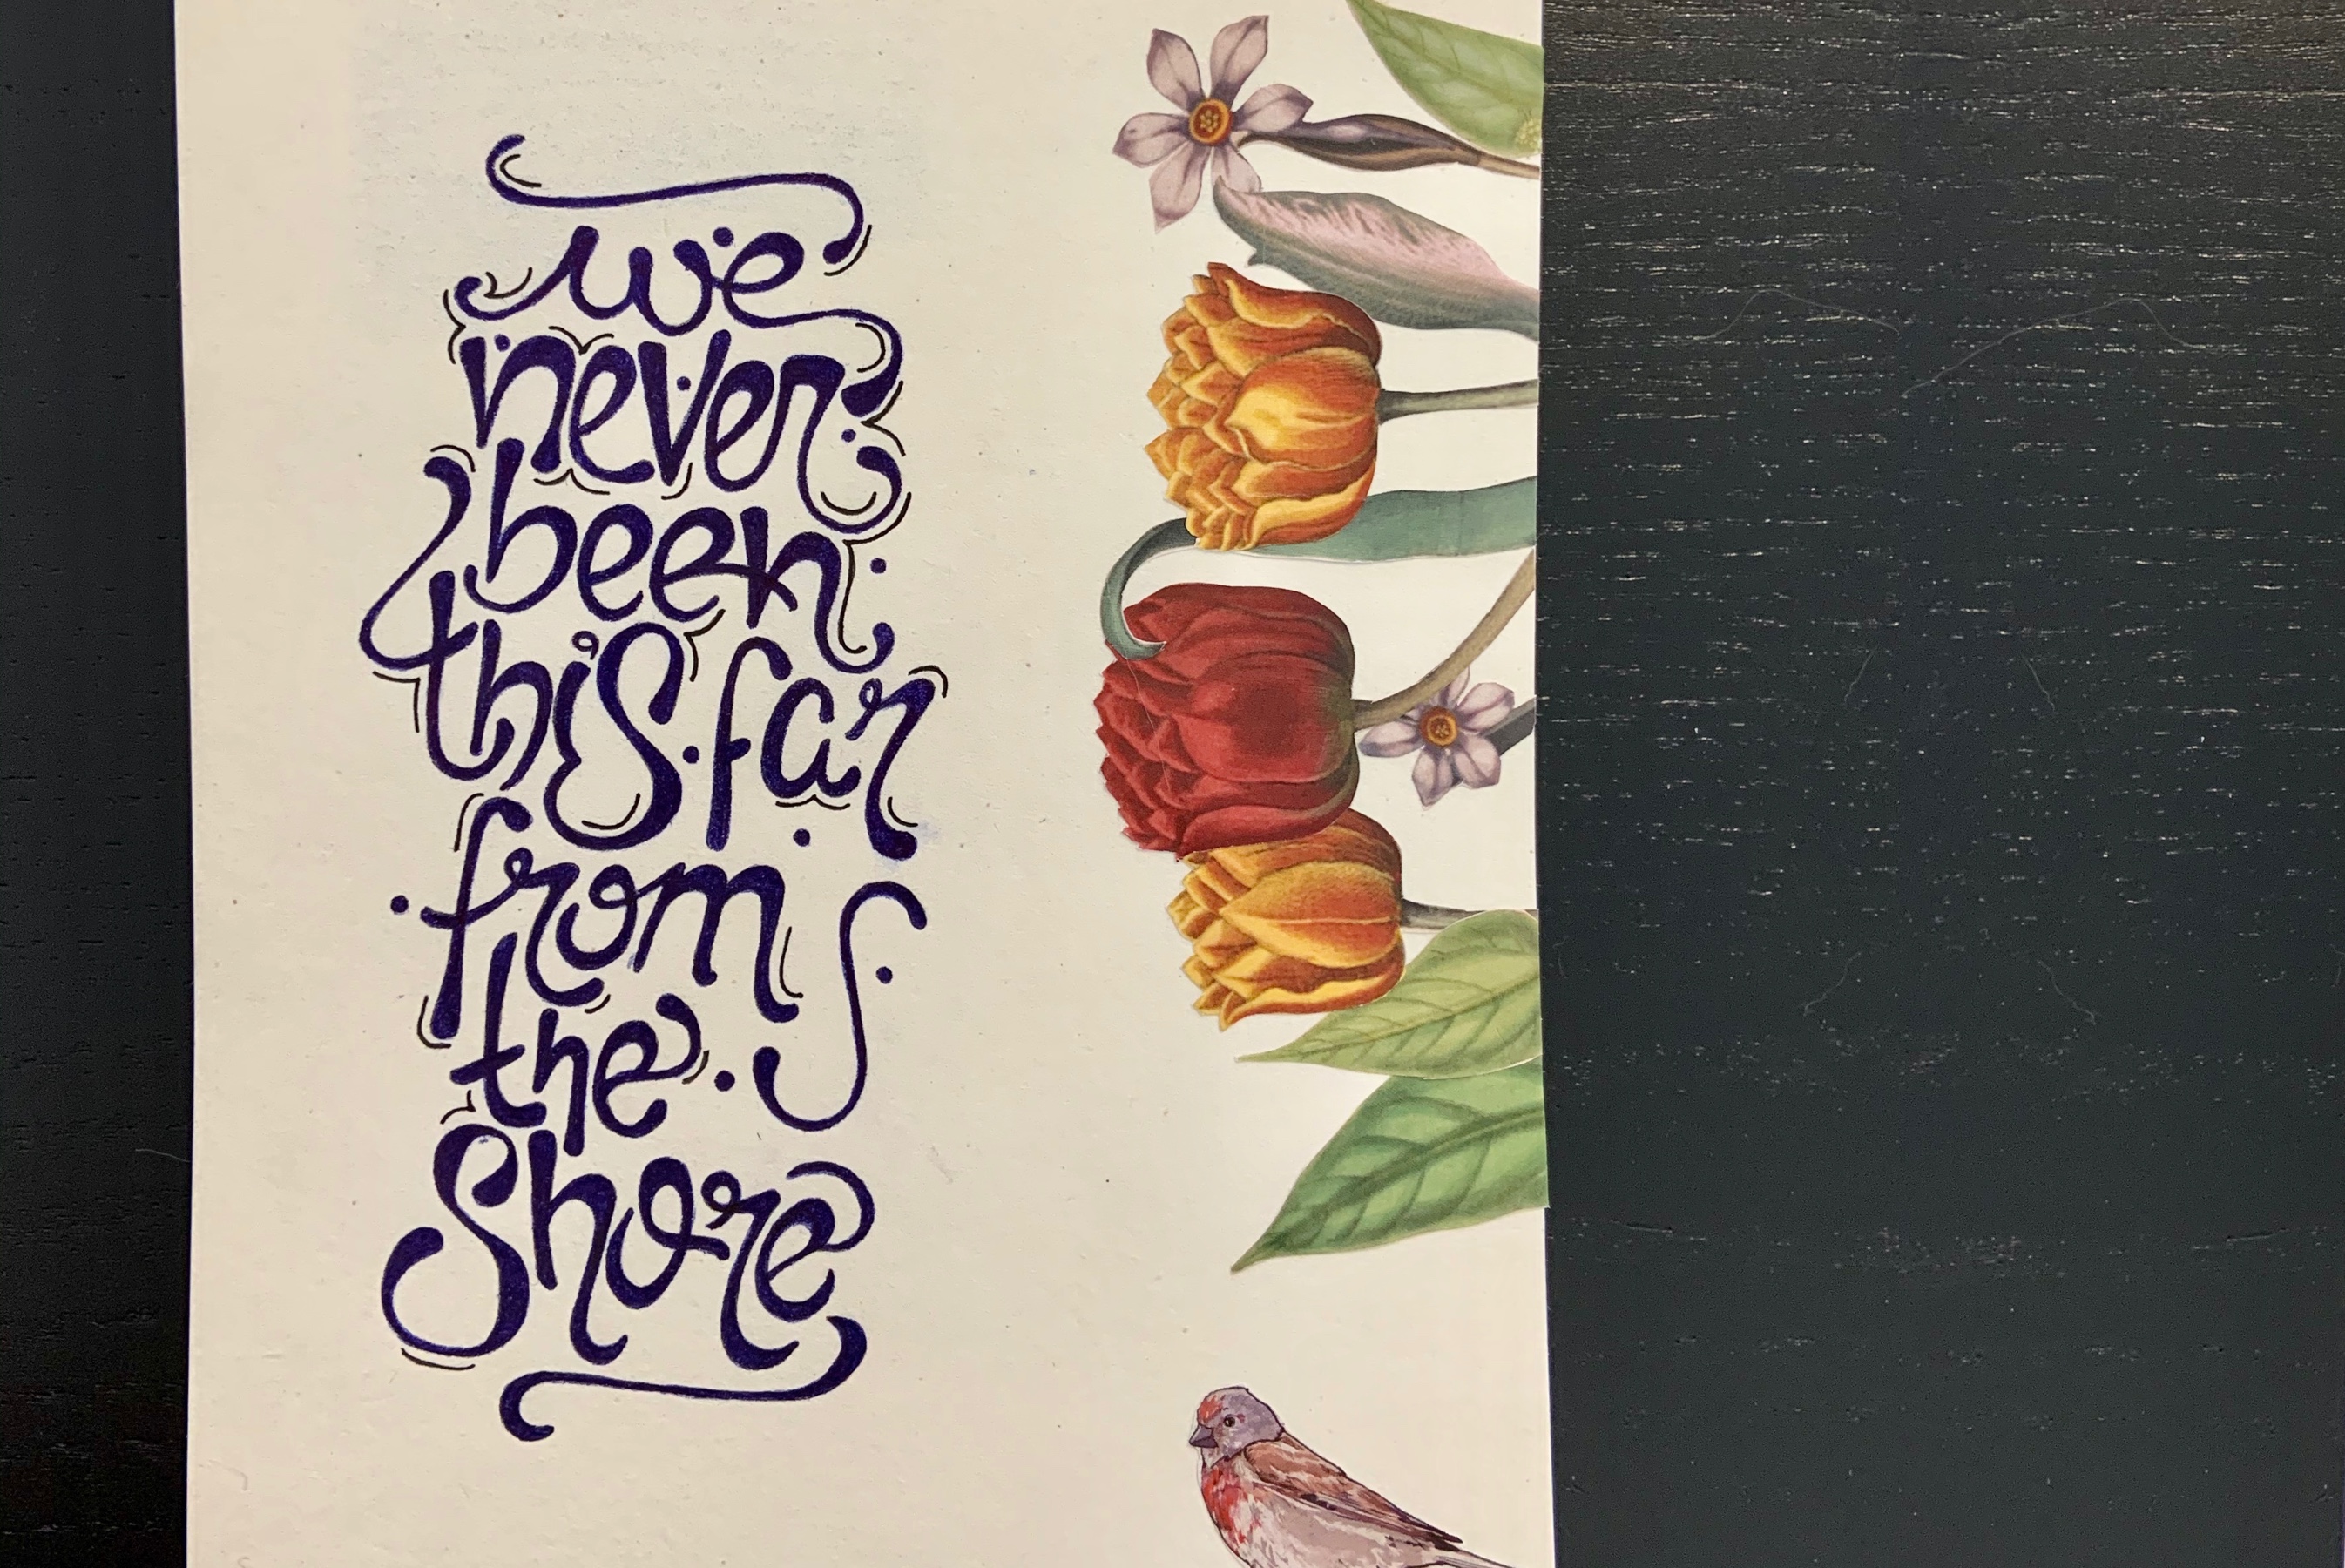 we
never
been
this far
from
the
shore